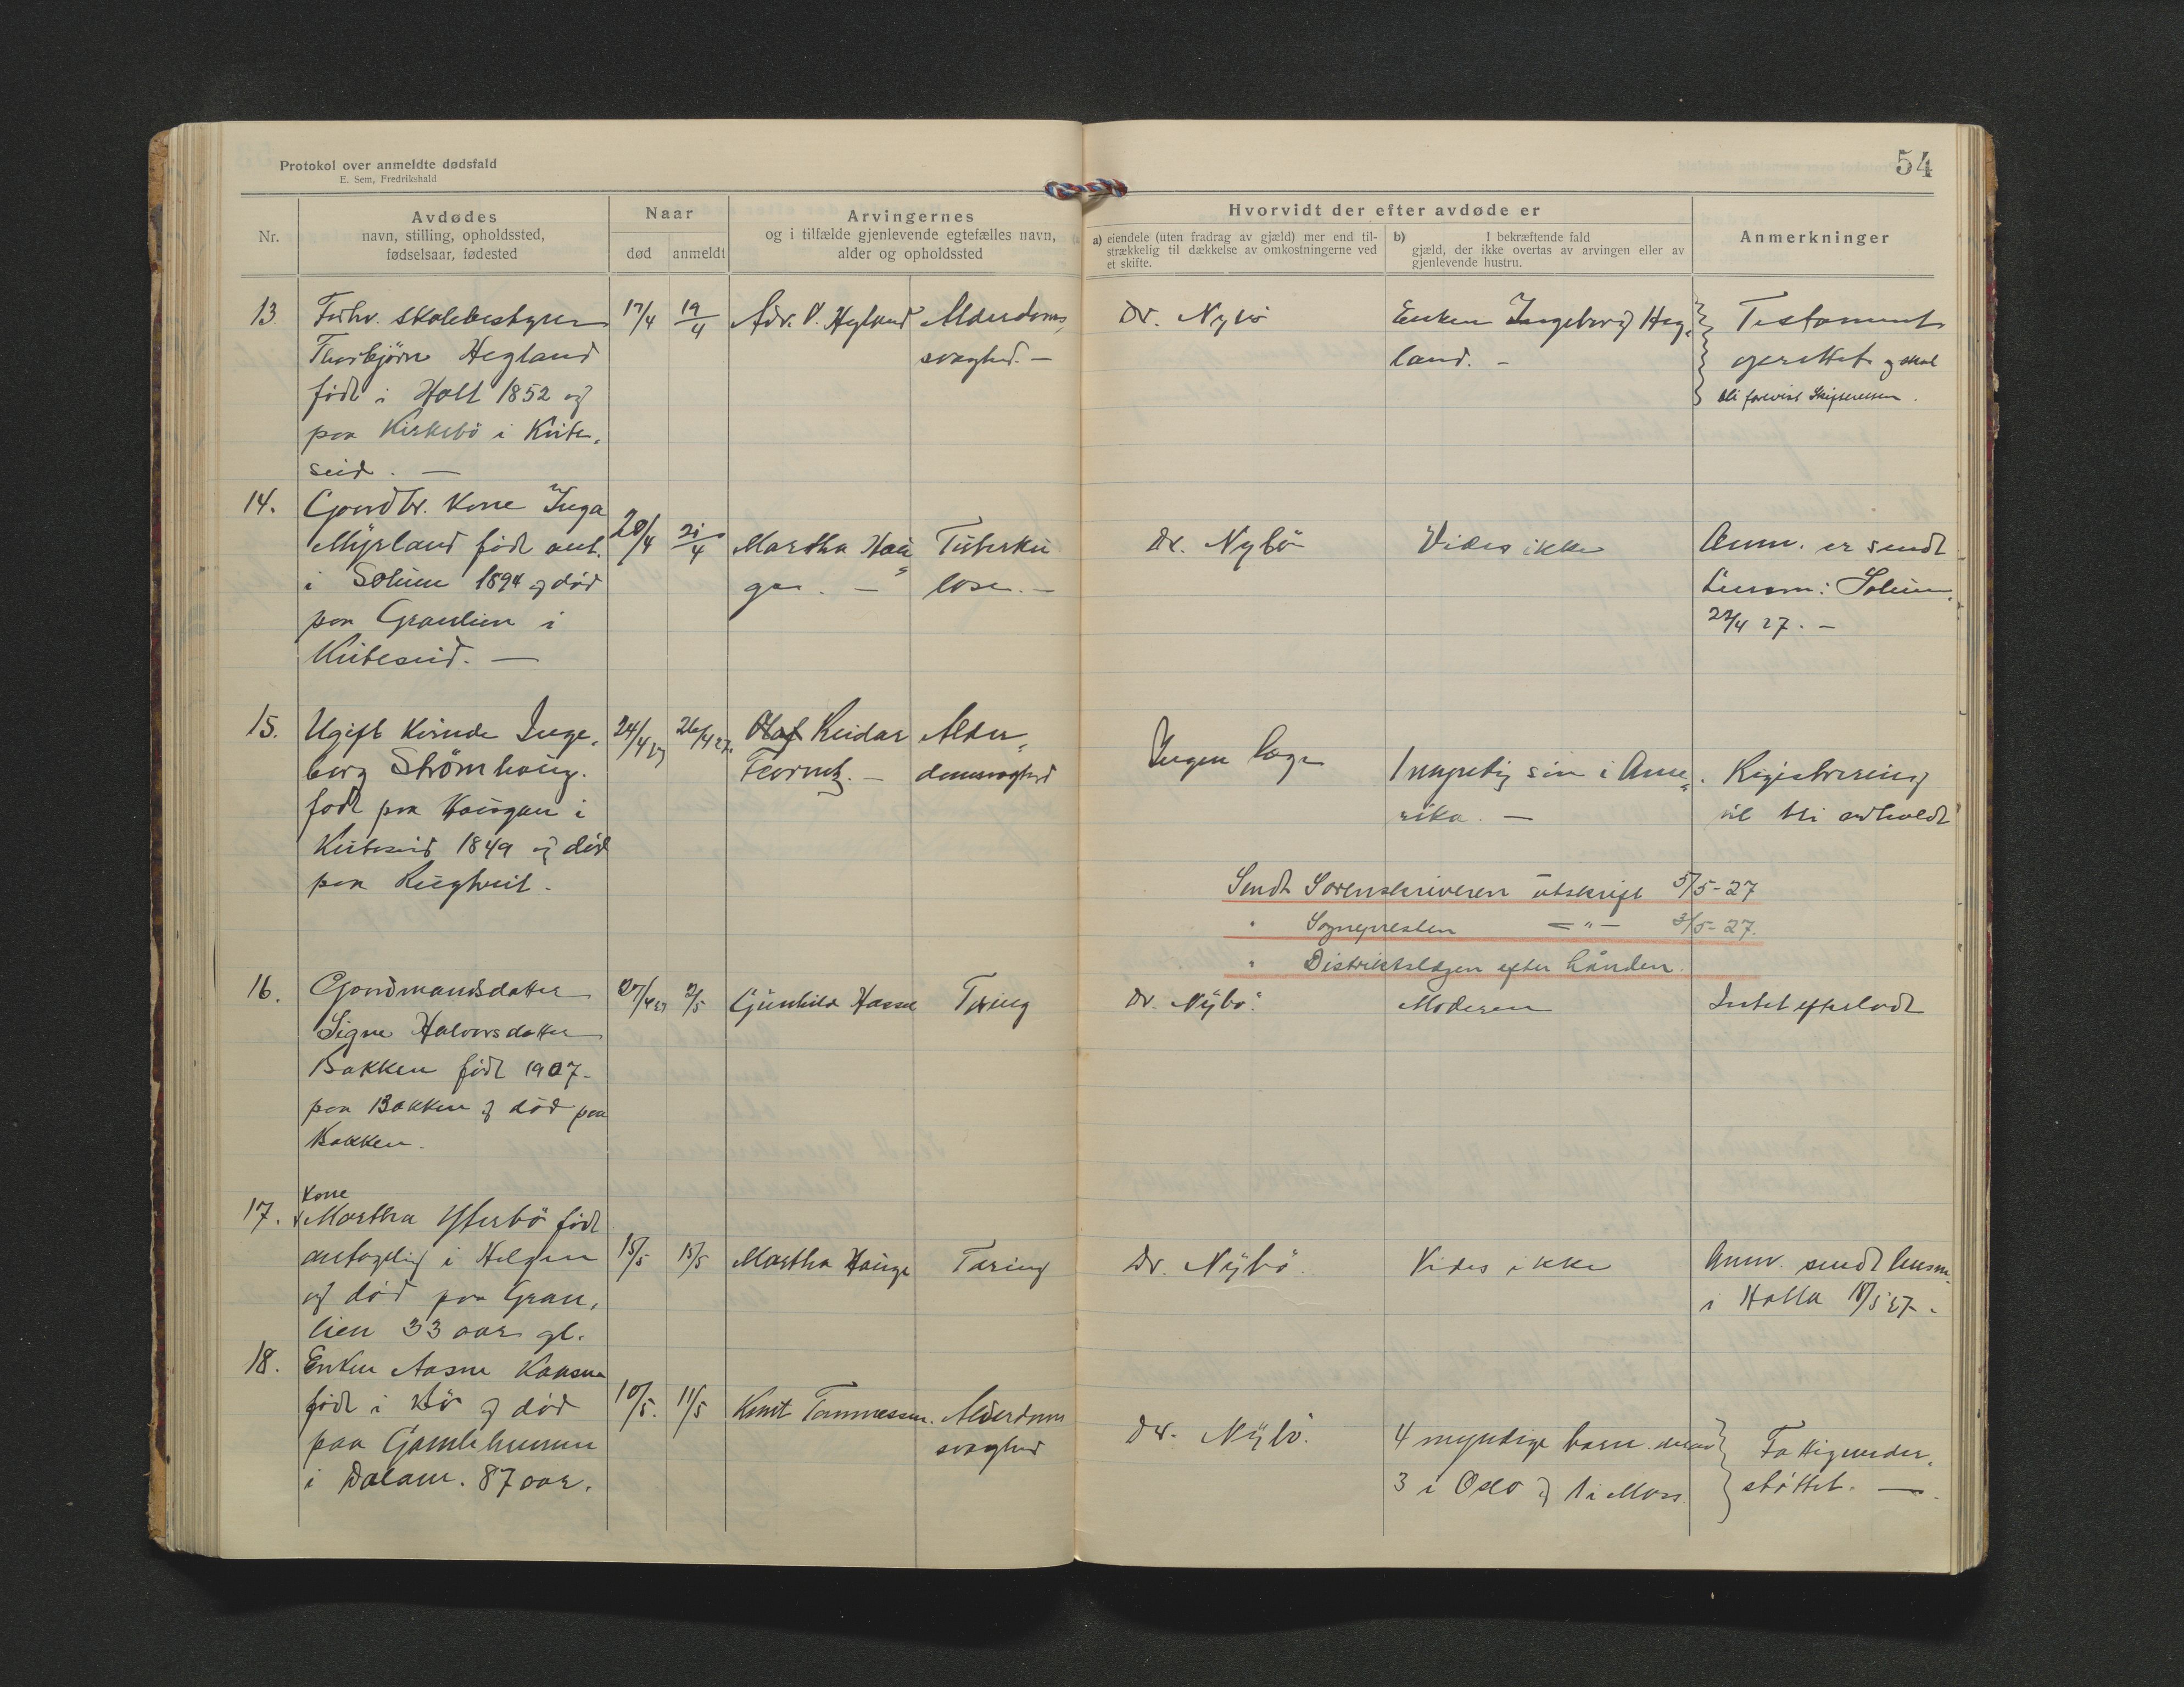 Protokol over anmeldte dødsfald
E. Sem, Fredrikshald
54
Nr.
Avdødes
navn, stilling, opholdssted,
fødselsaar, fødested
Naar
død
anmeldt
Arvingernes
og i tilfælde gjenlevende egtefælles navn,
alder og opholdssted
Hvorvidt der efter avdøde er
a) eiendele (uten fradrag av gjæld) mer end til-
strækkelig til dækkelse av omkostningerne ved
et skifte.
b) I bekræftende fald
gjæld, der ikke overtas av arvingen eller av
gjenlevende hustru.
Anmerkninger
13.
Forhv. skolebestyrer
Thorbjörn Hegland
född i Holt 1852 og
paa Kirkebö i Kvite-
seid. —
17/4
19/4
Adv. V. Hegland
Alderdoms-
svaghed. —
Dr. Nybö
Enken Ingeborg Heg-
land. —
Testament
oprettet og skal
bli forevist Skifteretten.
14.
Gaardbr. Kone Inga
Myrland född ant.
i Solum 1894 og död
paa Granlien i
Kviteseid. —
20/4
21/4
Martha Hau-
gen. —
Tuberku-
lose. —
Dr. Nybö
Vides ikke
Anm. er sendt
Lensm. i Solum
22/4 27. —
15.
Ugift kvinde Inge-
borg Strömhaug.
född paa Haugan i
Kviteseid 1849 og död
paa Rugtveit.
24/4 27
26/4 27.
Olaf Reidar
Alder-
domssvaghed
Ingen læge
1 myndig sön i Ame-
rika. —
Registrering
vil bli avholdt
Sendt Sorenskriveren utskrift 5/5-27
" Sognepresten — " — 3/5-27.
" Distriktslægen efter hånden.
16.
Gaardmandsdatter
Signe Halvorsdatter
Bakken född 1907-
paa Bakken og död paa
Bakken.
27/4 27
2/5
Gunhild
Tæring
Dr. Nybö.
Moderen
Intet efterladt
17.
Kone
Martha Ytterbö född
antagelig i Helgen
og död paa Gran-
lien 33 aar gl.
15/5
15/5
Martha Hauge
Tæring
Dr. Nybö.
Vides ikke
Anm. sendt lensm.
i Holla 18/5 27-.
18.
Enken Aasne Kaasne
född i Bö og död
paa Gamlehummu
i Dalane. 87 aar.
10/5.
11/5
Knut Tommessen.
Alderdoms
svaghed
Dr. Nybö.
4 myndige barn. derav
3 i Oslo og 1 i Moss.
Fattigunder-
støttet. —